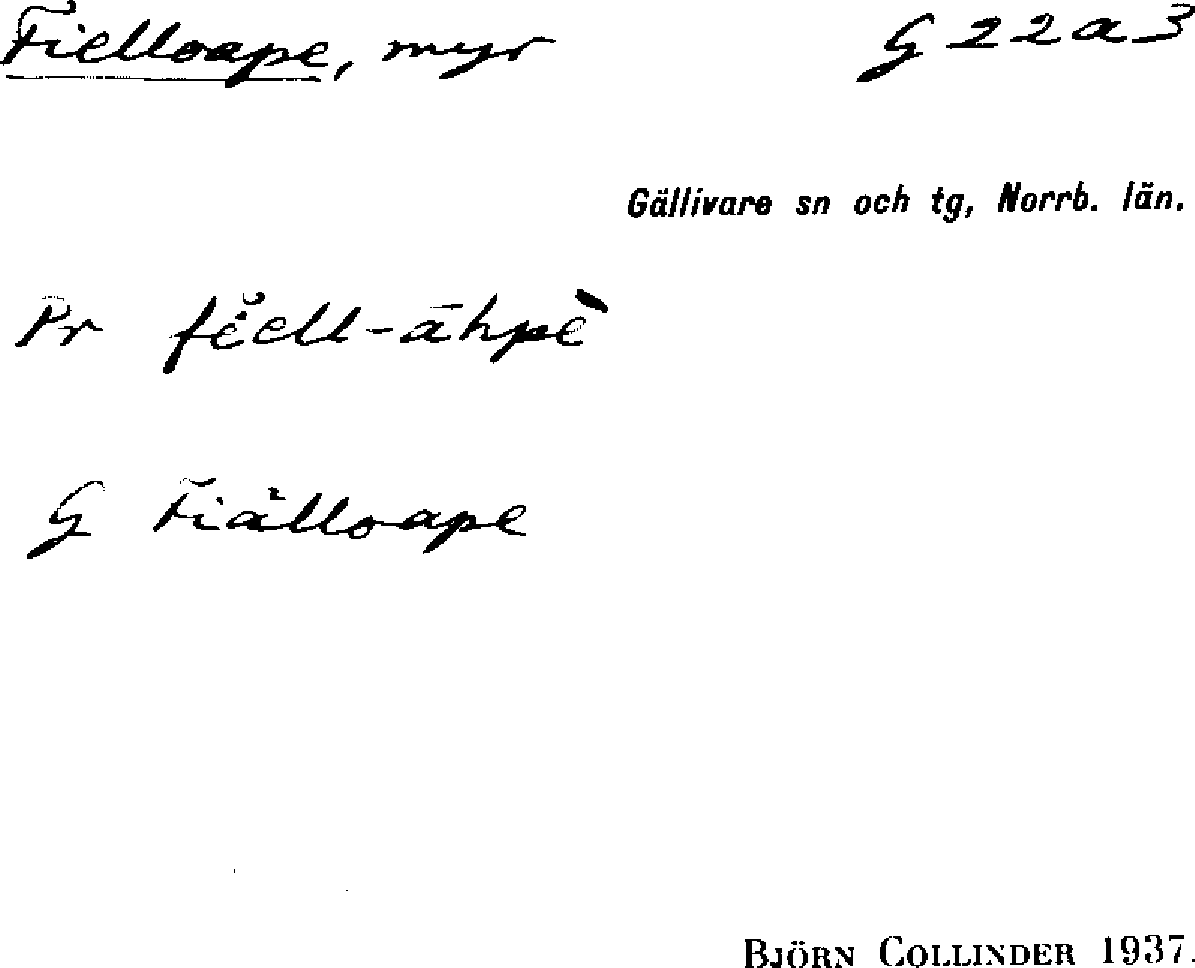 Fielloape, myr G 22 a 3
Gällivare sn och tg, Norrb. län.
Pr fĕell-āhpè
G Fiälloape
BJÖRN COLLINDER 1937.